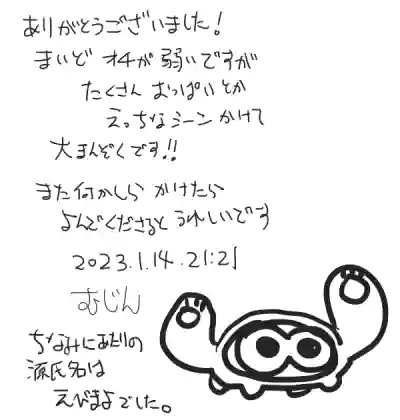 ありがとうございました!
まいど オチが 弱いですが
たくさん おっぱいとか
えっちなシーン かけて
大まんぞくです!!
また何かしら かけたら
よんでくださると うれしいです
2023.1.14.21:21
むじん
ちなみにあたりの
源氏名は
えびまよでした。